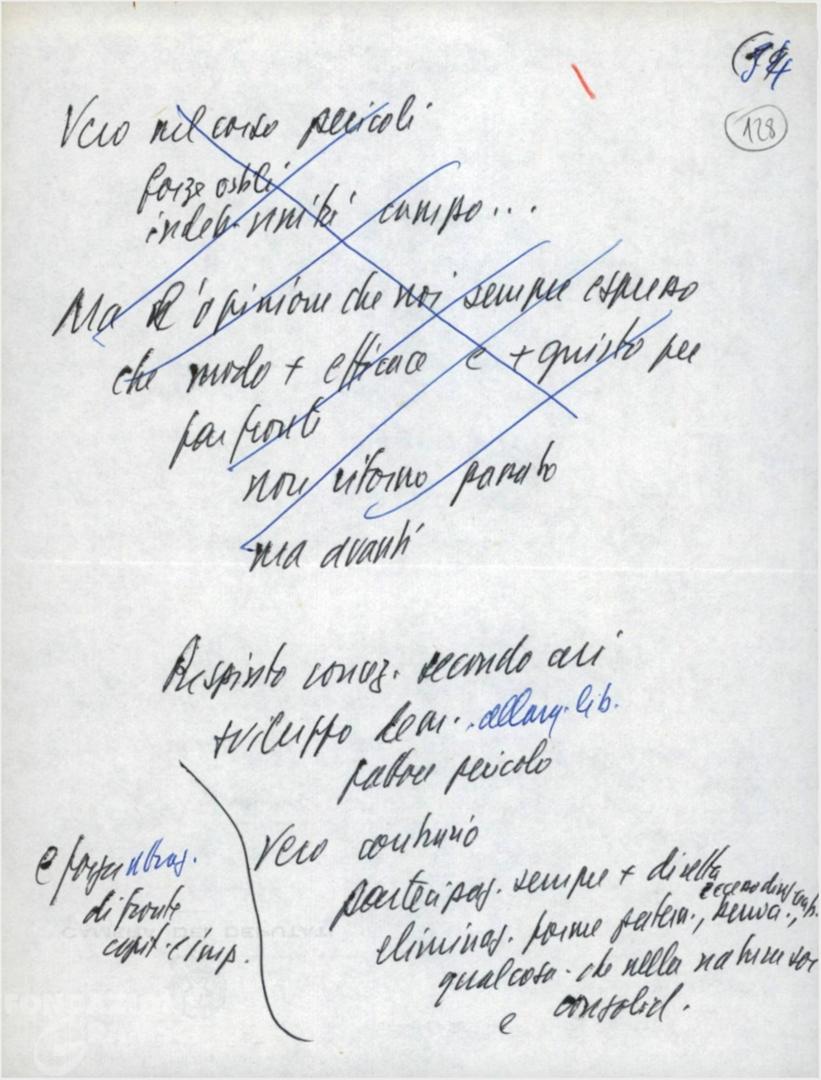 54
128
Vero nel corso pericoli
forze ostili
indeb. unità campo...
Ma l'opinione che noi sempre espresso
che modo + efficace e + giusto per
far fronte
non ritorno passato
ma avanti
Respinto concez. secondo cui
sviluppo dem. allarg. lib.
fattore pericolo
Vero contrario
partecipaz. sempre + diretta
eliminaz. forme patern.,
qualcosa che nella natura soc.
e consolid.
e forza attraz.
di fronte
capit. e imp.
CAMERA DEI DEPUTATI
FONDAZIONE